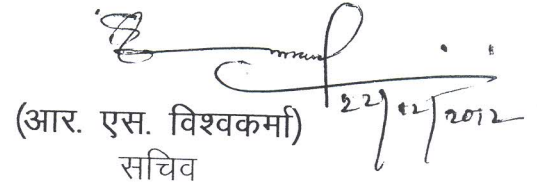 22/12/2012
(आर. एस. विश्वकर्मा)
सचिव